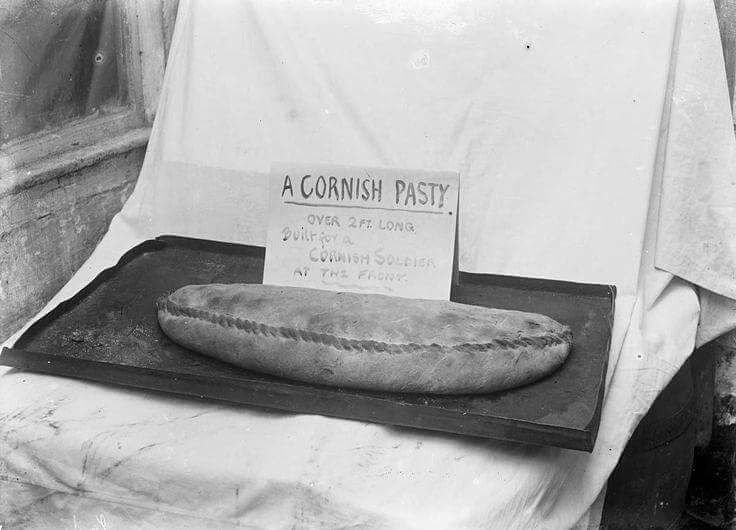 A CORNISH PASTY.
OVER 2 FT. LONG.
Built for a
CORNISH SOLDIER
AT THE FRONT.